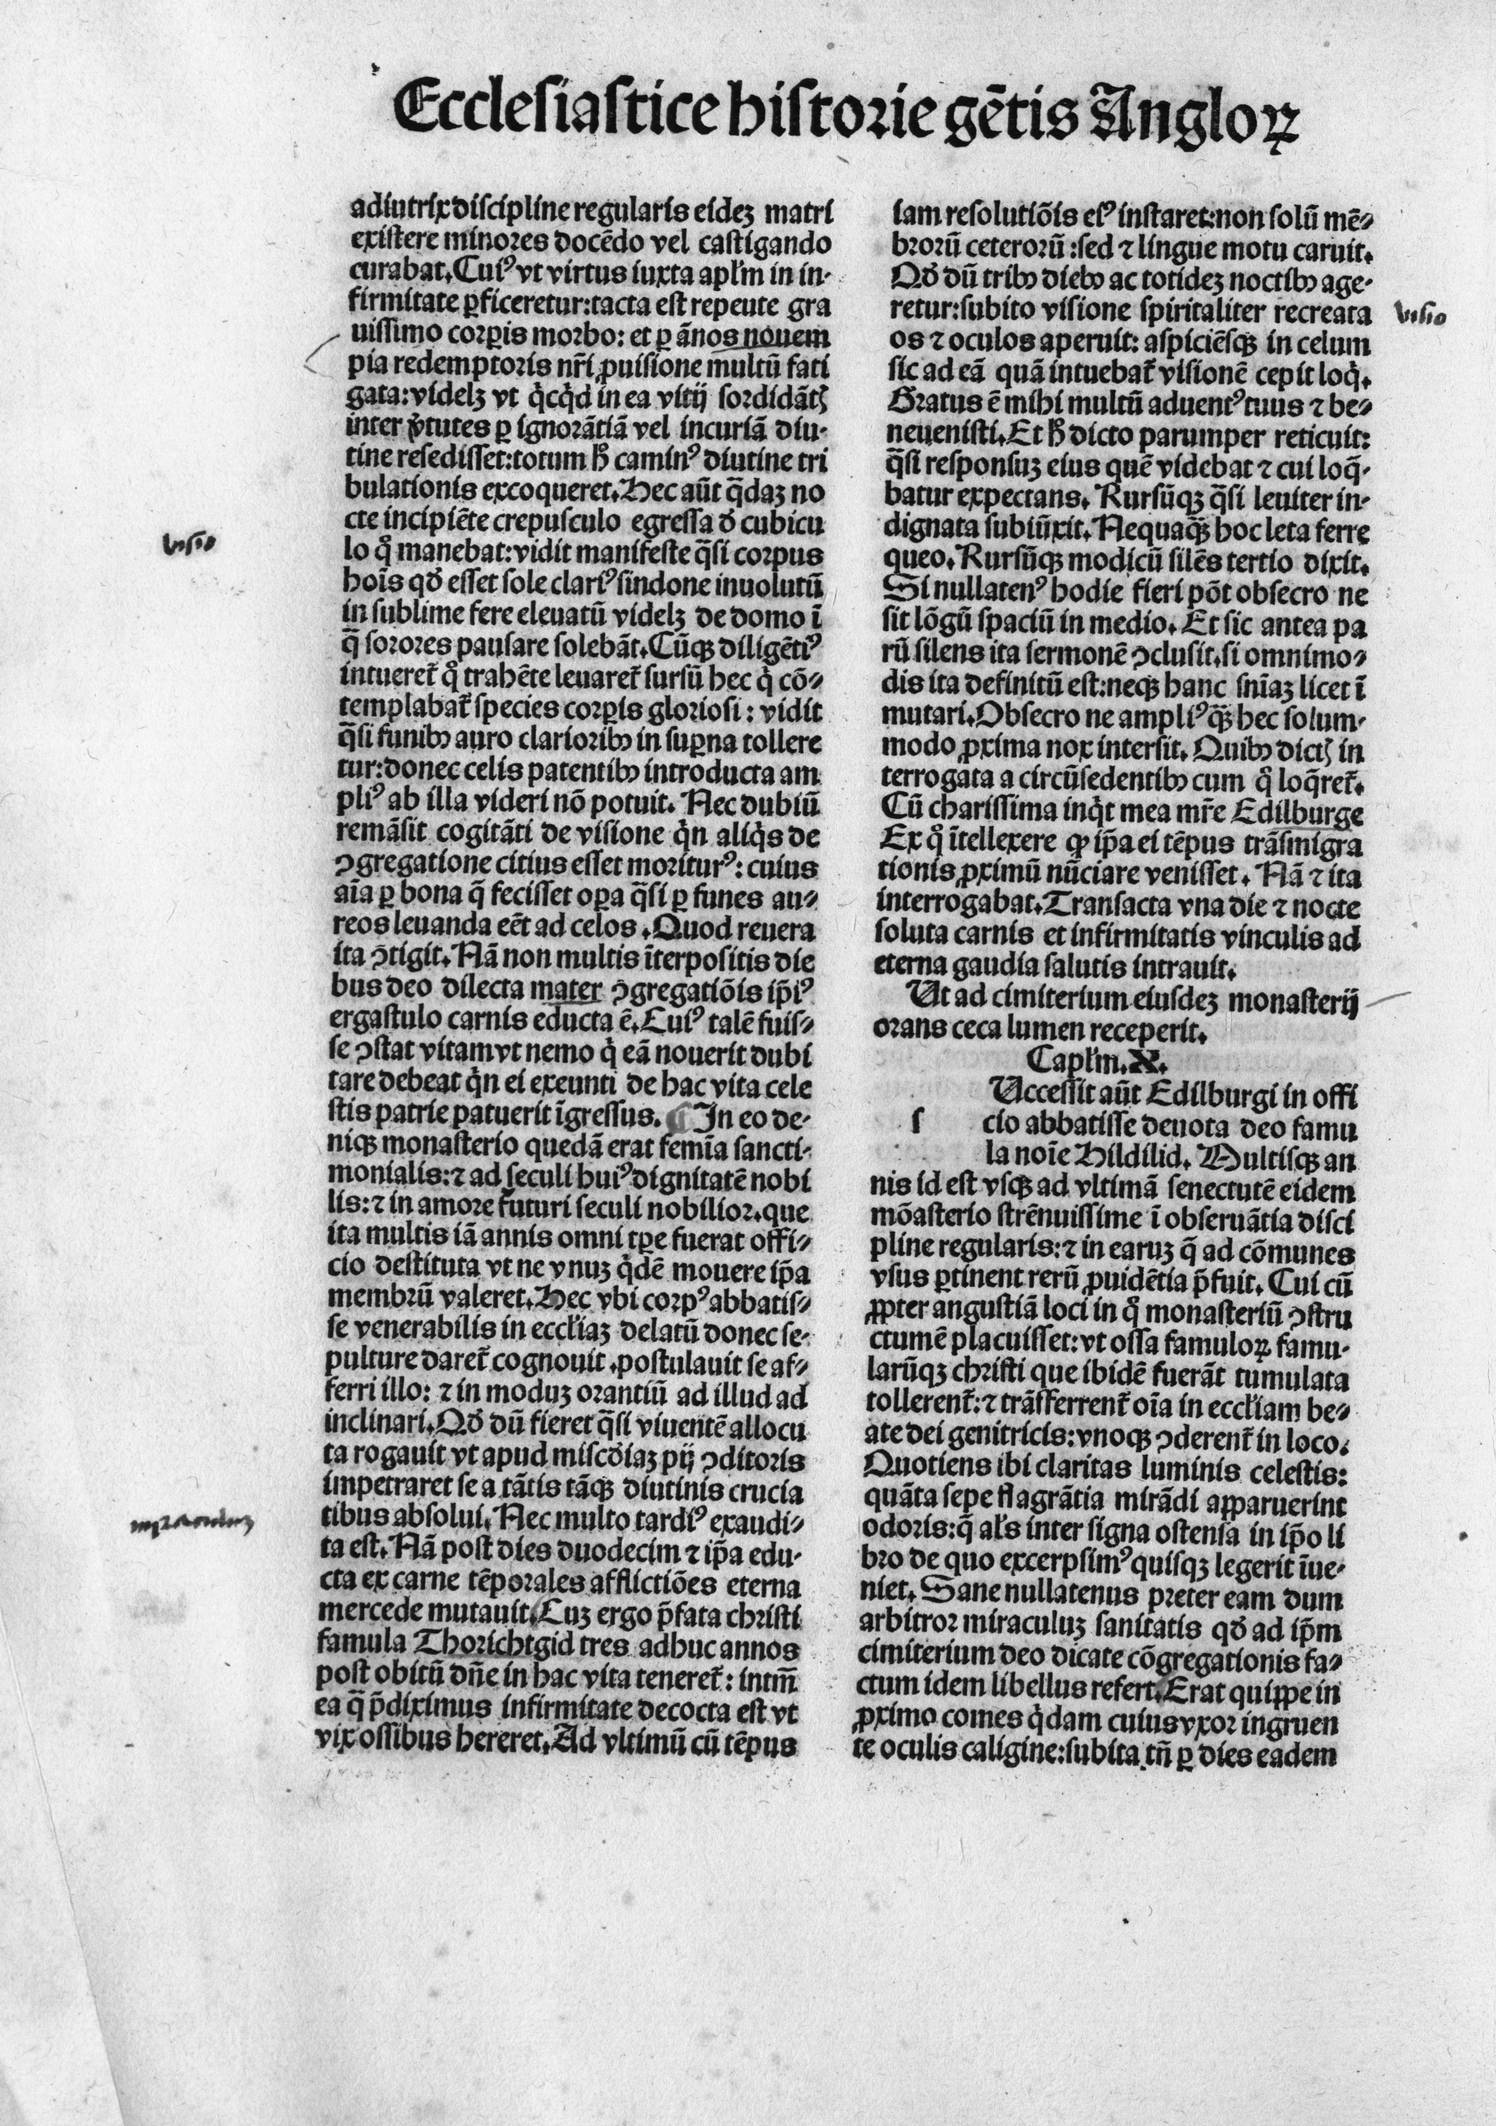 Ecclesiastice historie gētis Angloꝝ
adiutrix discipline regularis eidez matri
existere minores docēdo vel castigando
curabat. Cuiꝰ vt virtus iuxta apl'm in in-
firmitate ꝑficeretur: tacta est repente gra
uissimo corꝑis morbo: et ꝑ ānos nouem
pia redemptoris nr̄i ꝓuisione multū fati
gata: videlꝫ vt q̇cq̇d in ea vitij sordidātꝭ
inter v̓tutes ꝑ ignorātiā vel incuriā diu-
tine resedisset: totum hͦ caminꝰ diutine tri
bulationis excoqueret. Hec aūt q̄daꝫ no
cte incipiēte crepusculo egressa ď cubicu
lo qͦ manebat: vidit manifeste q̄si corpus
hoīs qď esset sole clariꝰ sindone inuolutū
in sublime fere eleuatū videlꝫ de domo ī
q̄ sorores pausare solebāt. Cūqꝫ diligētiꝰ
intueret̄ qͦ trahēte leuaret̄ sursū hec q̇ cō-
templabat̄ species corꝑis gloriosi: vidit
q̄si funibꝰ auro clarioribꝰ in suꝑna tollere
tur: donec celis patentibꝰ introducta am
pliꝰ ab illa videri nō potuit. Nec dubiū
remāsit cogitāti de visione q̇n aliq̇s de
ꝯgregatione citius esset moriturꝰ: cuius
aīa ꝑ bona q̄ fecisset oꝑa q̄si ꝑ funes au-
reos leuanda eēt ad celos. Quod reuera
ita ꝯtigit. Nā non multis īterpositis die
bus deo dilecta mater ꝯgregatiōis ip̄iꝰ
ergastulo carnis educta ē. Cuiꝰ talē fuis-
se ꝯstat vitam vt nemo q̇ eā nouerit dubi
tare debeat q̇n ei exeunti de hac vita cele
stis patrie patuerit īgressus. ¶ In eo de-
niqꝫ monasterio quedā erat femīa sancti-
monialis: ⁊ ad seculi huiꝰ dignitatē nobi
lis: ⁊ in amore futuri seculi nobilior. que
ita multis iā annis omni tꝑe fuerat offi-
cio destituta vt ne vnuꝫ q̇dē mouere ip̄a
membrū valeret. Hec vbi corpꝰ abbatis-
se venerabilis in eccl'iaꝫ delatū donec se-
pulture daret̄ cognouit. postulauit se af-
ferri illo: ⁊ in moduꝫ orantiū ad illud ad
inclinari. Qď dū fieret q̄si viuentē allocu
ta rogauit vt apud miscďiaꝫ pij ꝯditoris
impetraret se a tātis tāqꝫ diutinis crucia
tibus absolui. Nec multo tardiꝰ exaudi-
ta est. Nā post dies duodecim ⁊ ip̄a edu-
cta ex carne tēporales afflictiōes eterna
mercede mutauit. Cuꝫ ergo p̄fata christi
famula Thorichtgid tres adhuc annos
post obitū dn̄e in hac vita teneret̄: intm̄
ea q̄ p̄diximus infirmitate decocta est vt
vix ossibus hereret. Ad vltimū cū tēpus
iam resolutiōis eiꝰ instaret: non solū mē-
brorū ceterorū: sed ⁊ lingue motu caruit.
Qď dū tribꝰ diebꝰ ac totideꝫ noctibꝰ age-
retur: subito visione spiritaliter recreata
os ⁊ oculos aperuit: aspiciēsqꝫ in celum
sic ad eā quā intuebat̄ visionē cepit loq̇.
Gratus ē mihi multū aduentꝰ tuus ⁊ be-
neuenisti. Et hͦ dicto parumper reticuit:
q̄si responsuꝫ eius quē videbat ⁊ cui loq̄-
batur expectans. Rursūqꝫ q̄si leuiter in-
dignata subiūxit. Nequaq̄ꝫ hoc leta ferre
queo. Rursūqꝫ modicū silēs tertio dixit.
Si nullatenꝰ hodie fieri pōt obsecro ne
sit lōgū spaciū in medio. Et sic antea pa
rū silens ita sermonē ꝯclusit. si omnimo-
dis ita definitū est: neqꝫ hanc sn̄iaꝫ licet ī
mutari. Obsecro ne ampliꝰ q̄ꝫ hec solum-
modo ꝓxima nox intersit. Quibꝰ dictꝭ in
terrogata a circūsedentibꝰ cum qͦ loq̄ret̄.
Cū charissima inq̇t mea mr̄e Edilburge
Ex qͦ ītellexere ꝙ ip̄a ei tēpus trāsmigra
tionis ꝓximū nūciare venisset. Nā ⁊ ita
interrogabat. Transacta vna die ⁊ nocte
soluta carnis et infirmitatis vinculis ad
eterna gaudia salutis intrauit.
Ut ad cimiterium eiusdeꝫ monasterij
orans ceca lumen receperit.
Capl'm. X.
s
Uccessit aūt Edilburgi in offi
cio abbatisse deuota deo famu
la noīe Hildilid. Multisqꝫ an
nis id est vsqꝫ ad vltimā senectutē eidem
mōasterio strēnuissime ī obseruātia disci
pline regularis: ⁊ in earuꝫ q̄ ad cōmunes
vsus ꝑtinent rerū ꝓuidētia p̄fuit. Cui cū
ꝓpter angustiā loci in qͦ monasteriū ꝯstru
ctumē placuisset: vt ossa famuloꝝ famu-
larūqꝫ christi que ibidē fuerāt tumulata
tollerent̄: ⁊ trāsferrent̄ oīa in eccl'iam be-
ate dei genitricis: vnoqꝫ ꝯderent̄ in loco.
Quotiens ibi claritas luminis celestis:
quāta sepe flagrātia mirādi apparuerint
odoris: q̄ al's inter signa ostensa in ip̄o li
bro de quo excerpsimꝰ quisqꝫ legerit īue-
niet. Sane nullatenus preter eam dum
arbitror miraculuꝫ sanitatis qď ad ip̄m
cimiterium deo dicate cōgregationis fa-
ctum idem libellus refert. Erat quippe in
ꝓximo comes q̇dam cuius vxor ingruen
te oculis caligine: subita tn̄ ꝑ dies eadem
visio
visio